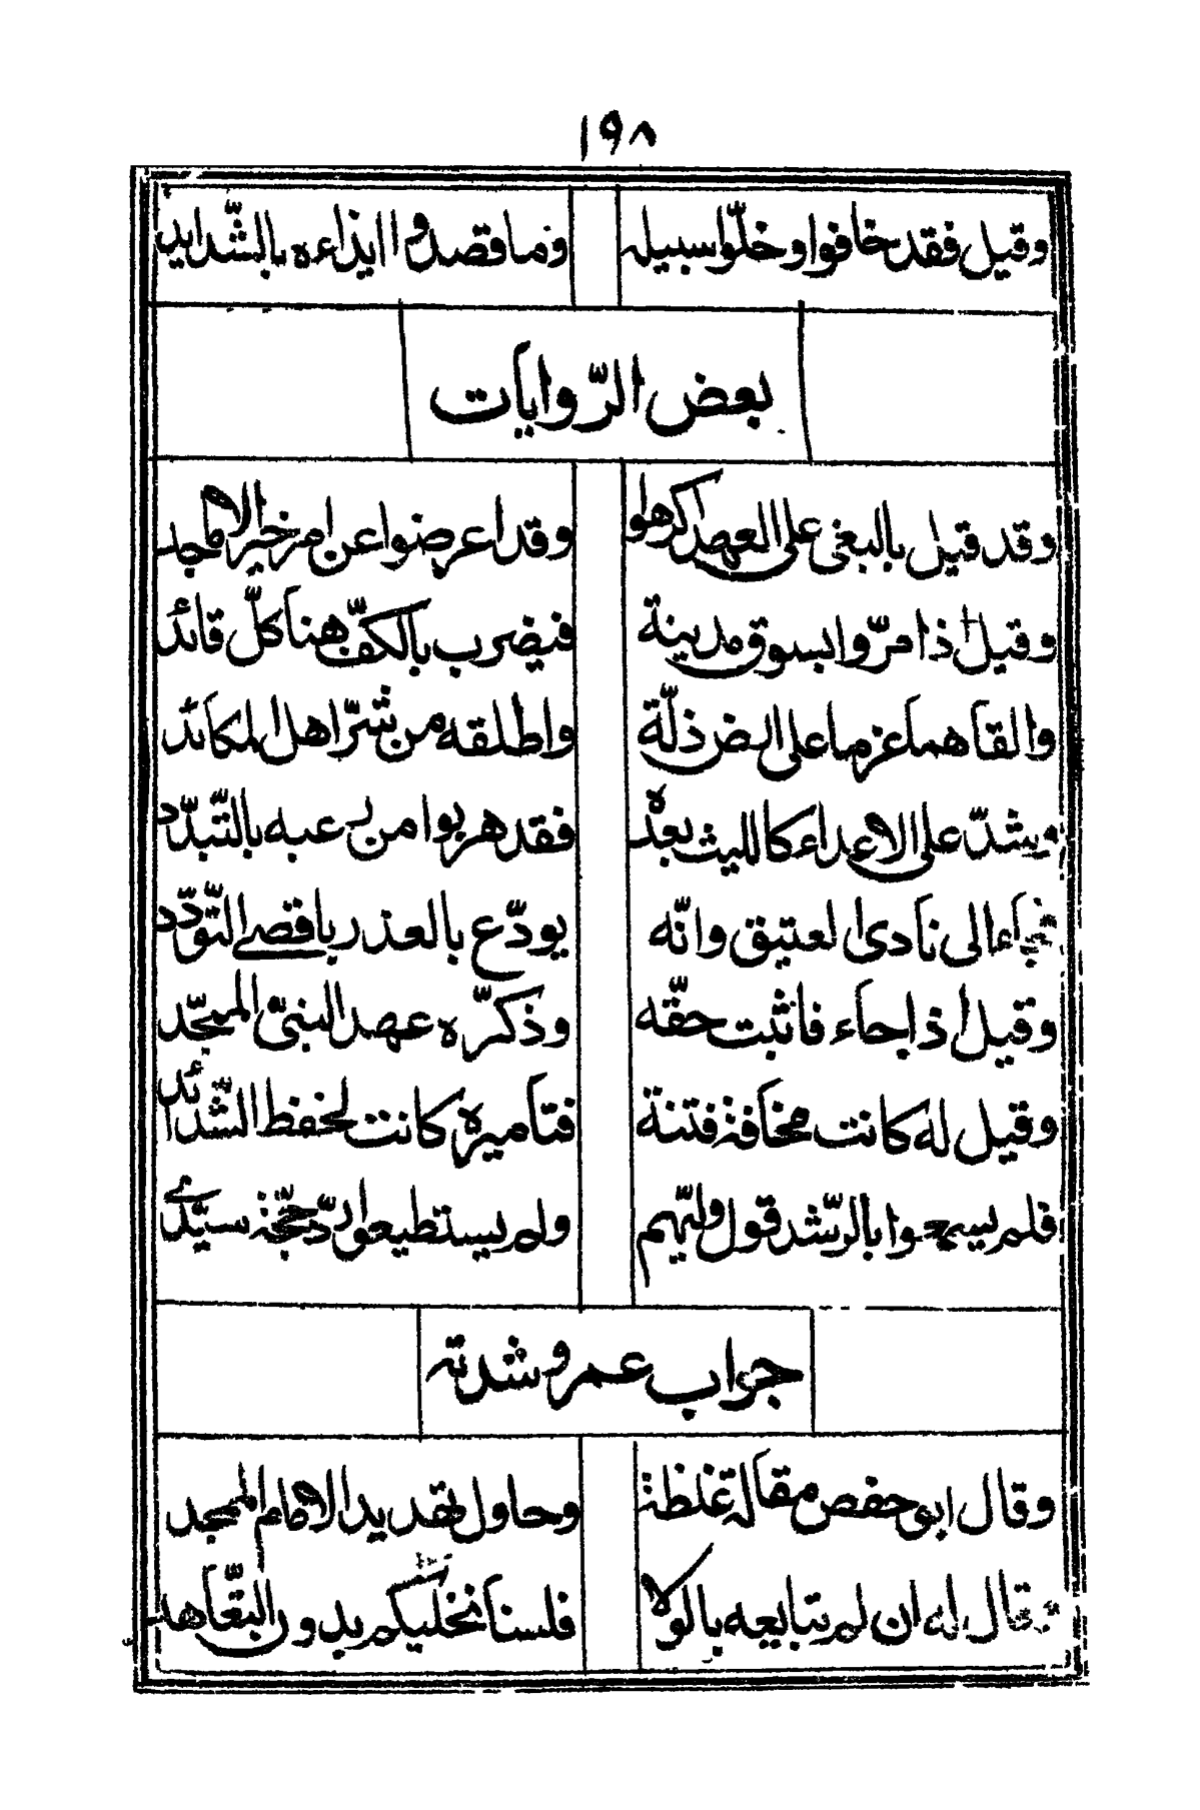 ١٩٨
وقيل فقد خافوا وخلّوا سبيله وما قصدوا ايذاءه بالشّدايد
بعض الرّوايات
وقد قيل بالبغى على العهد اكرهوا وقد اعرضوا عن امر خير الاماجد
وقيل اذا مرّوا بسوق مدينة فيضرب بالكفّ هنا كلّ قائد
والقاهما عزما على ارض ذلّة واطلقه من شرّ اهل المكائد
ويشدّ على الاعداء كالليث بعده فقد هربوا من رعبه بالتّبدّد
فجاء الى نادى العتيق وانّه يودّع بالعذر باقصے التّودّد
وقيل اذا جاء فاثبت حقّه وذكّره عهد النبىّ الممجّد
وقيل له كانت مخافة فتنة فتأميره كانت لحفظ الشّدائد
فلم يسمعوا بالرّشد قول وليّهم ولم يستطيعوا ردّ حجّة سيّدے
جواب عمرو شدته
وقال ابى حفص مقالة غلظة وحاول تهديد الامام الممجد
وقال له ان لم تبايعه بالولا فلسنا نخليكم بدون التّعاهد